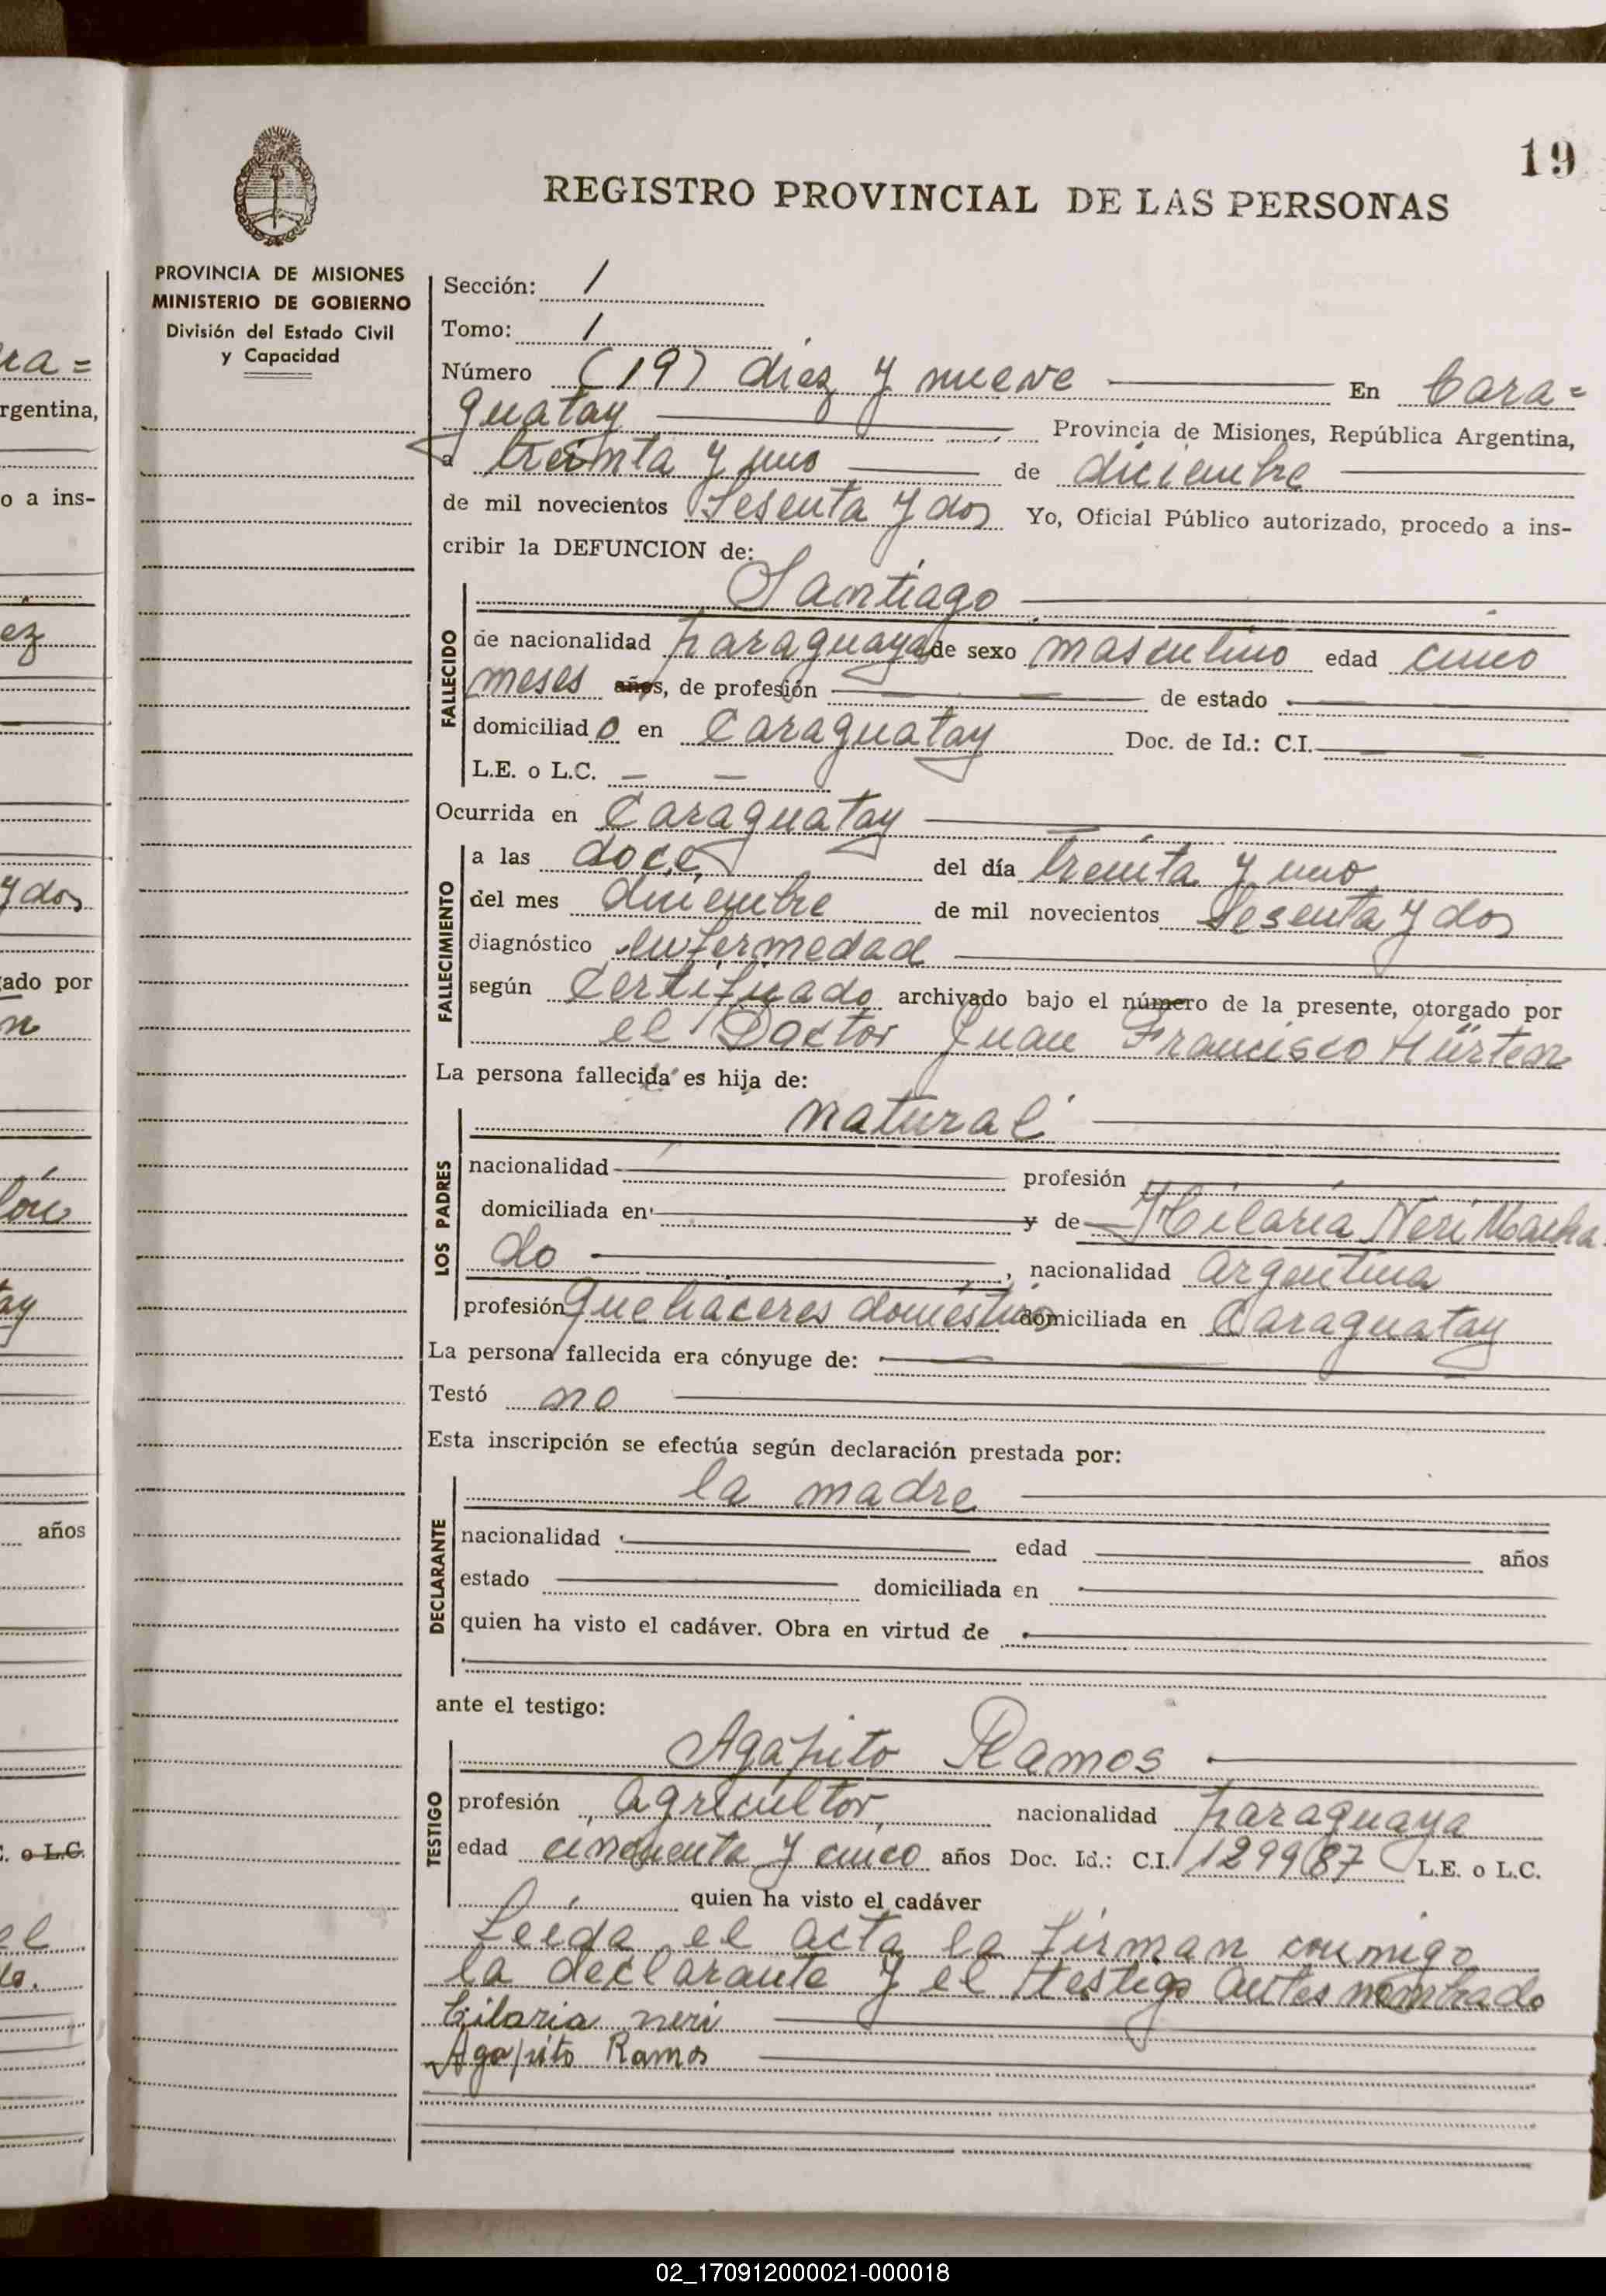 19
REGISTRO PROVINCIAL DE LAS PERSONAS
PROVINCIA DE MISIONES
MINISTERIO DE GOBIERNO
División del Estado Civil
y Capacidad
Sección: 1
Tomo: 1
Número (19) diez y nueve En Cara=
guatay Provincia de Misiones, República Argentina,
a treinta y uno de diciembre
de mil novecientos Sesenta y dos Yo, Oficial Público autorizado, procedo a ins-
cribir la DEFUNCION de:
Santiago
FALLECIDO
de nacionalidad paraguaya de sexo masculino edad cinco
meses años, de profesión de estado
domiciliado en Caraguatay Doc. de Id.: C.I.
L.E. o L.C.
Ocurrida en Caraguatay
FALLECIMIENTO
a las doce del día treinta y uno
del mes diciembre de mil novecientos Sesenta y dos
diagnóstico enfermedad
según Certificado archivado bajo el número de la presente, otorgado por
el Doctor Juan Francisco Hürten
La persona fallecida es hija de:
natural
LOS PADRES
nacionalidad profesión
domiciliada en y de Hilaria Neri Macha
do , nacionalidad argentina
profesión quehaceres domésticos domiciliada en Caraguatay
La persona fallecida era cónyuge de:
Testó no
Esta inscripción se efectúa según declaración prestada por:
la madre
DECLARANTE
nacionalidad edad años
estado domiciliada en
quien ha visto el cadáver. Obra en virtud de
ante el testigo:
Agapito Ramos
TESTIGO
profesión agricultor nacionalidad paraguaya
edad cincuenta y cinco años Doc. Id.: C.I. 129987 L.E. o L.C.
quien ha visto el cadáver
Leida el acta la firman conmigo
la declarante y el testigo antes nombrado
hilaria neri
Agapito Ramos
ra=
rgentina,
o a ins-
ez
y dos
ado por
n
ay
años
o L.C.
el
02_170912000021-000018